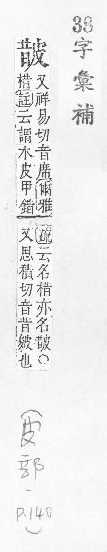 38
字彙補
皵
又祥易切音席爾雅
疏云名楷亦名皵○
楷註云謂木皮甲錯
又思積切音昔皴也
(皮部-
P.148)